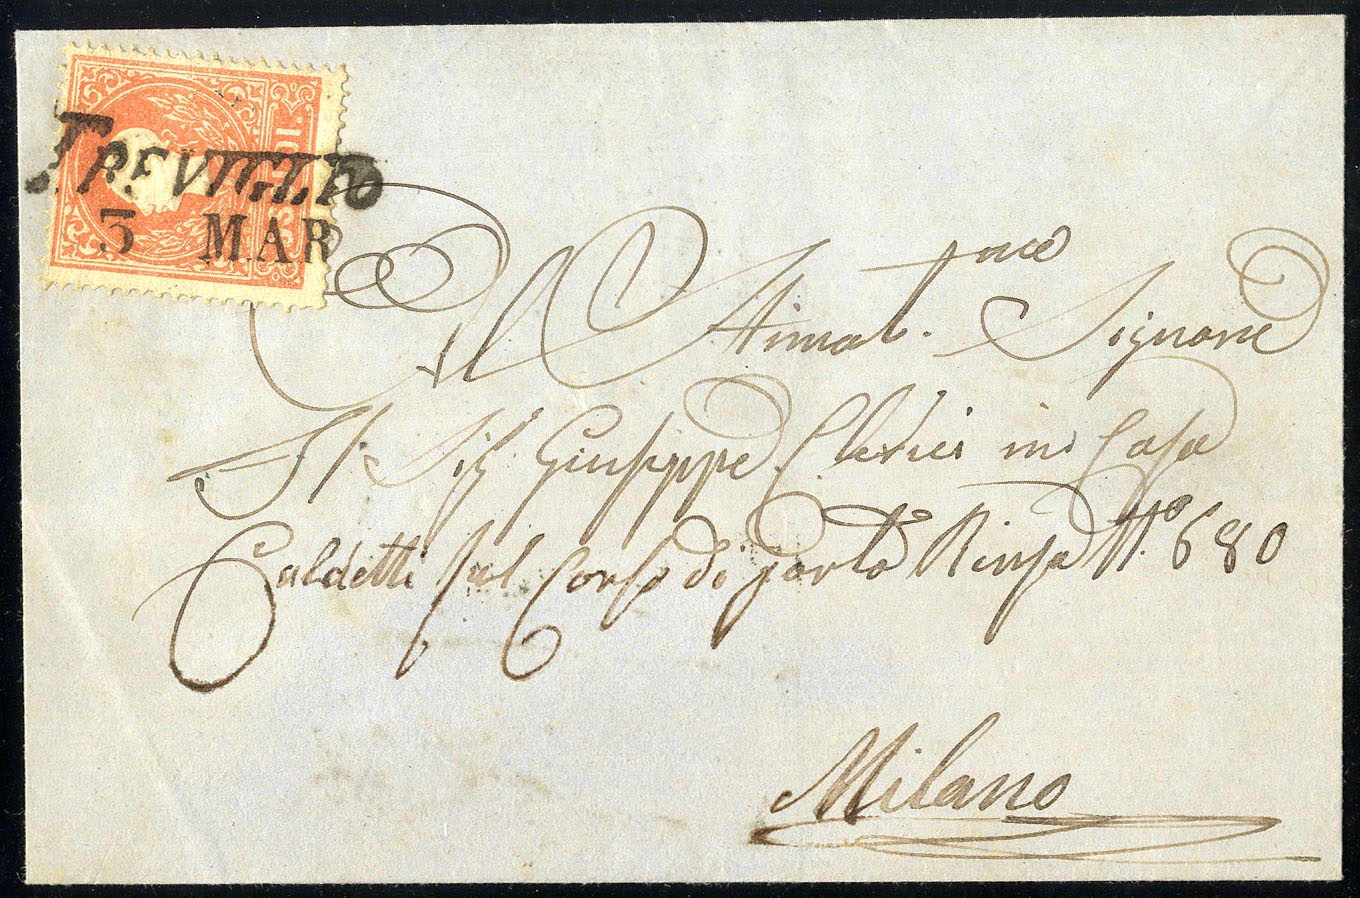 TREVIGLIO
3 MAR
SOLDI
Al Stimat.mo Signore
Il Sig. Giuseppe Clerici in Casa
Caldetti sul Corso di porta Rensa N.° 680
Milano